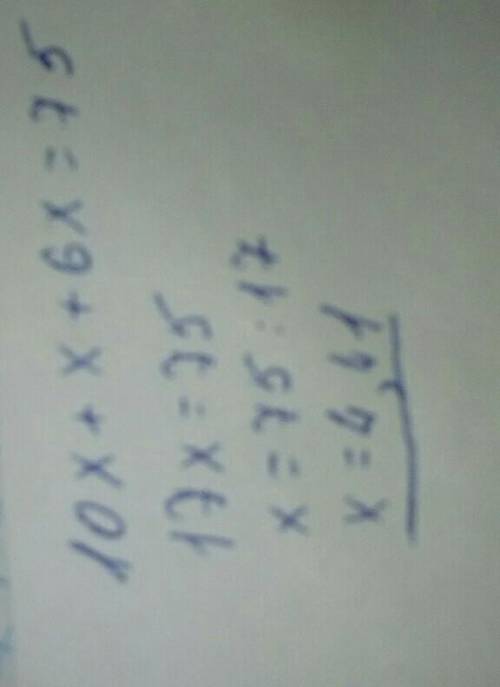 10x + x + 6x = 75
17x = 75
x = 75 : 17
x = 4,41